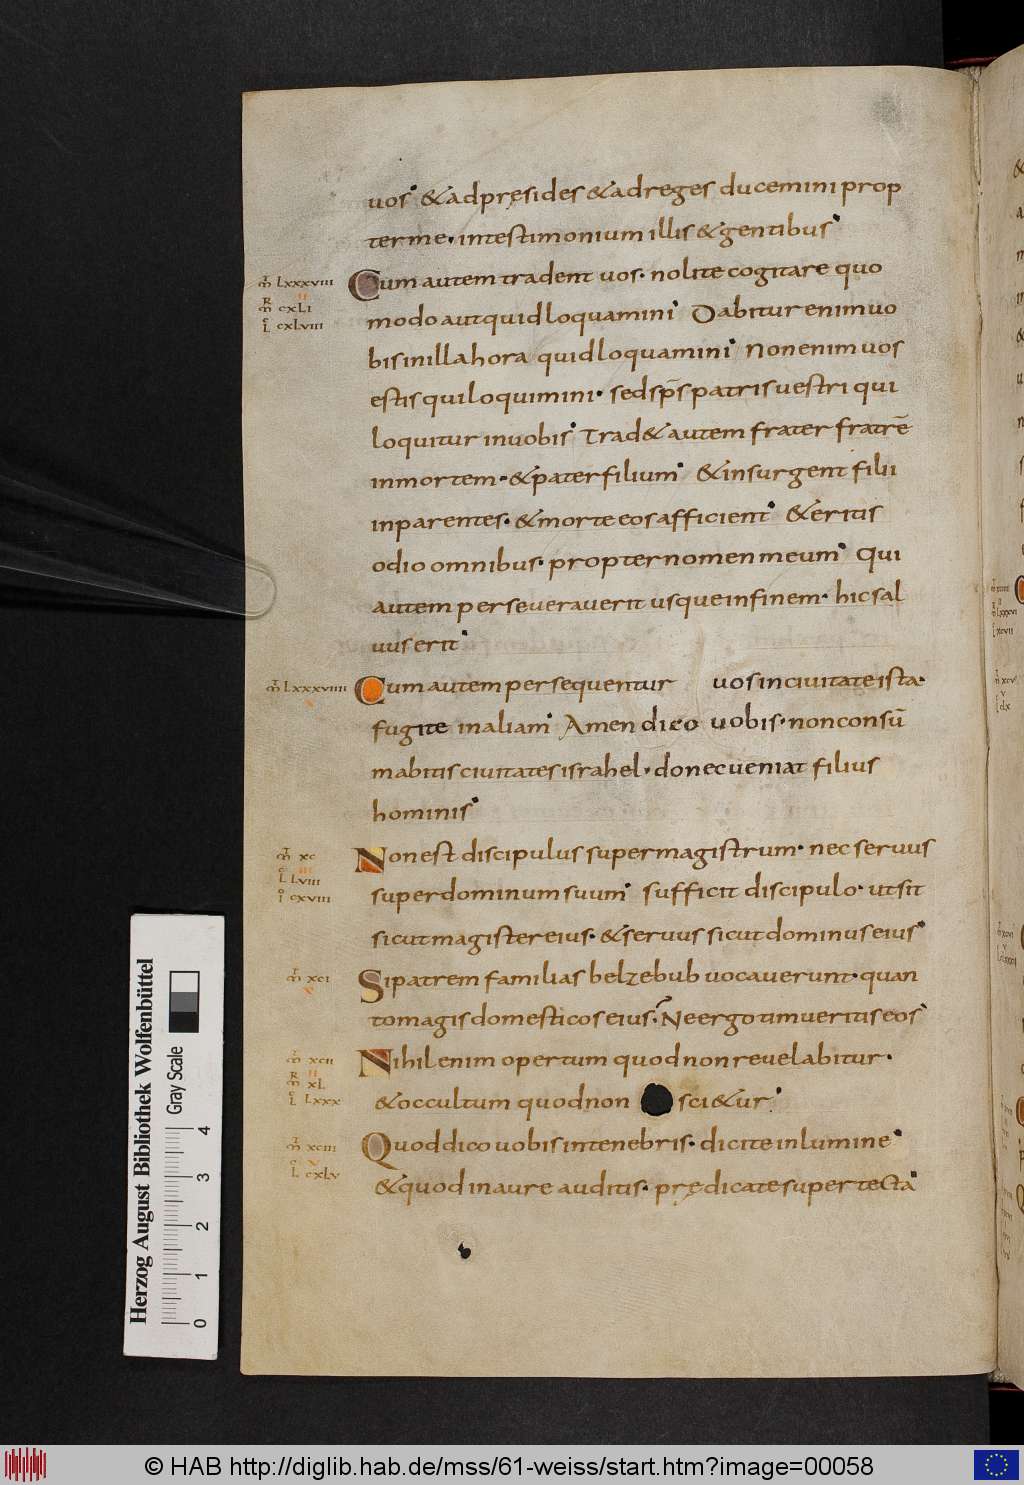 uos · & ad pręsides & ad reges ducemini prop
ter me · in testimonium illis & gentibus ·
mτ Lxxxviii
mR cxLi
Lc cxLviii
Cum autem tradent uos · nolite cogitare quo
modo aut quid loquamini · Dabitur enim uo
bis in illa hora quid loquamini · Non enim uos
estis qui loquimini · sed sp̄s patris uestri qui
loquitur in uobis · Trad& autem frater fratrē
in mortem · & pater filium · & insurgent filii
in parentes · & morte eos afficient · & eritis
odio omnibus · propter nomen meum · Qui
autem perseuerauerit usque in finem · hic sal
uus erit ·
mτ Lxxxviiii
x
Cum autem persequentur uos in ciuitate ista ·
fugite in aliam · Amen dico uobis · non consū
mabitis ciuitates israhel · donec ueniat filius
hominis ·
mτ xc
iii
Lc Lviii
io cxviii
Non est discipulus super magistrum · nec seruus
super dominum suum · sufficit discipulo · ut sit
sicut magister eius · & seruus sicut dominus eius ·
mτ xci
x
Si patrem familias belzebub uocauerunt · quan
to magis domesticos eius · Ne ergo timueritis eos ·
mτ xcii
ii
mR xL
Lc Lxxx
Nihil enim opertum quod non reuelabitur ·
& occultum quod non sci&ur ·
mτ xciii
v
Lc cxLv
Quod dico uobis in tenebris · dicite in lumine ·
& quod in aure auditis · prędicate super tecta ·
Herzog August Bibliothek Wolfenbüttel
Gray Scale
0 1 2 3 4
© HAB http://diglib.hab.de/mss/61-weiss/start.htm?image=00058